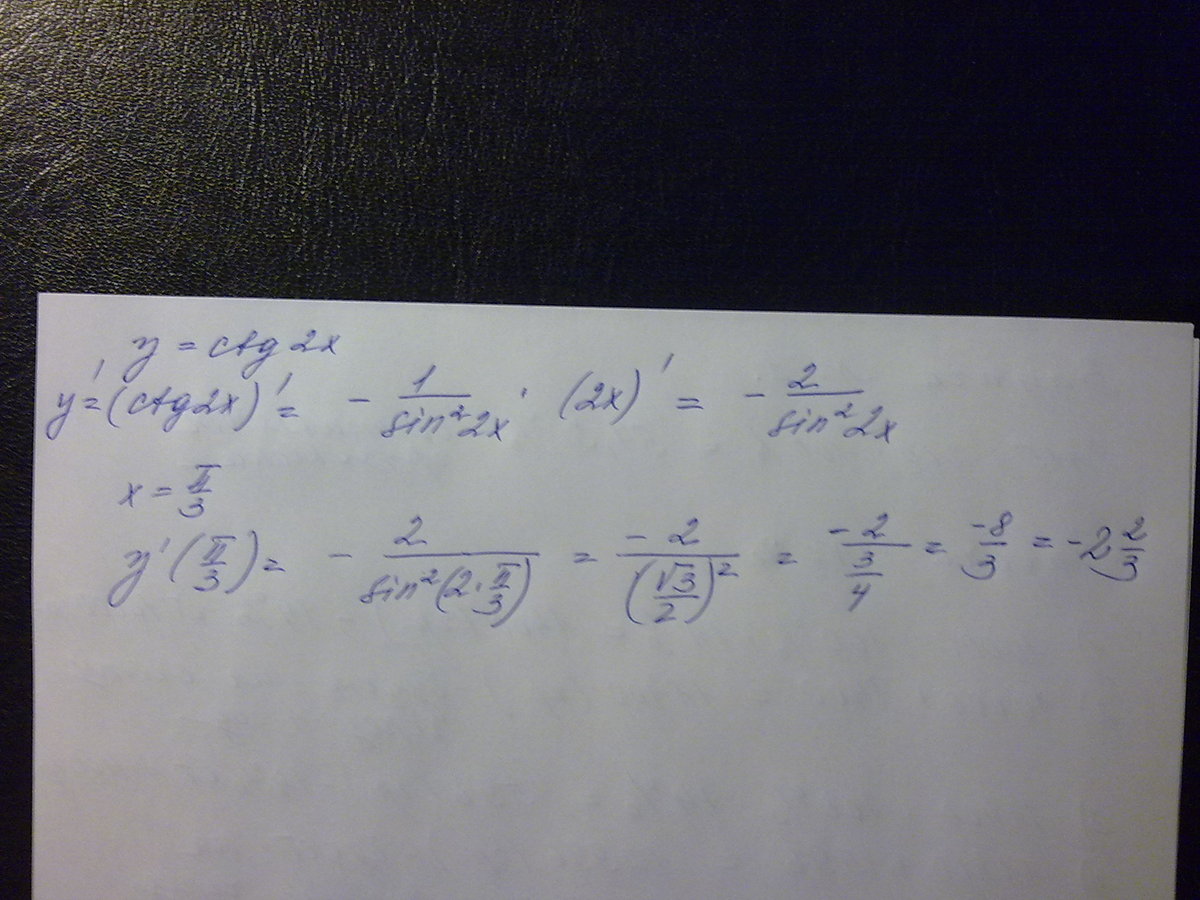 y = ctg 2x
y' = (ctg 2x)' = - 1/sin²2x · (2x)' = - 2/sin²2x
x = π/3
y'(π/3) = - 2/sin²(2·π/3) = -2/(√3/2)² = -2/(3/4) = -8/3 = -2 2/3